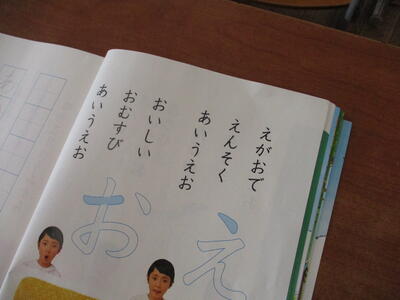 えがおで
えんそく
あいうえお
おいしい
おむすび
あいうえお
え
お